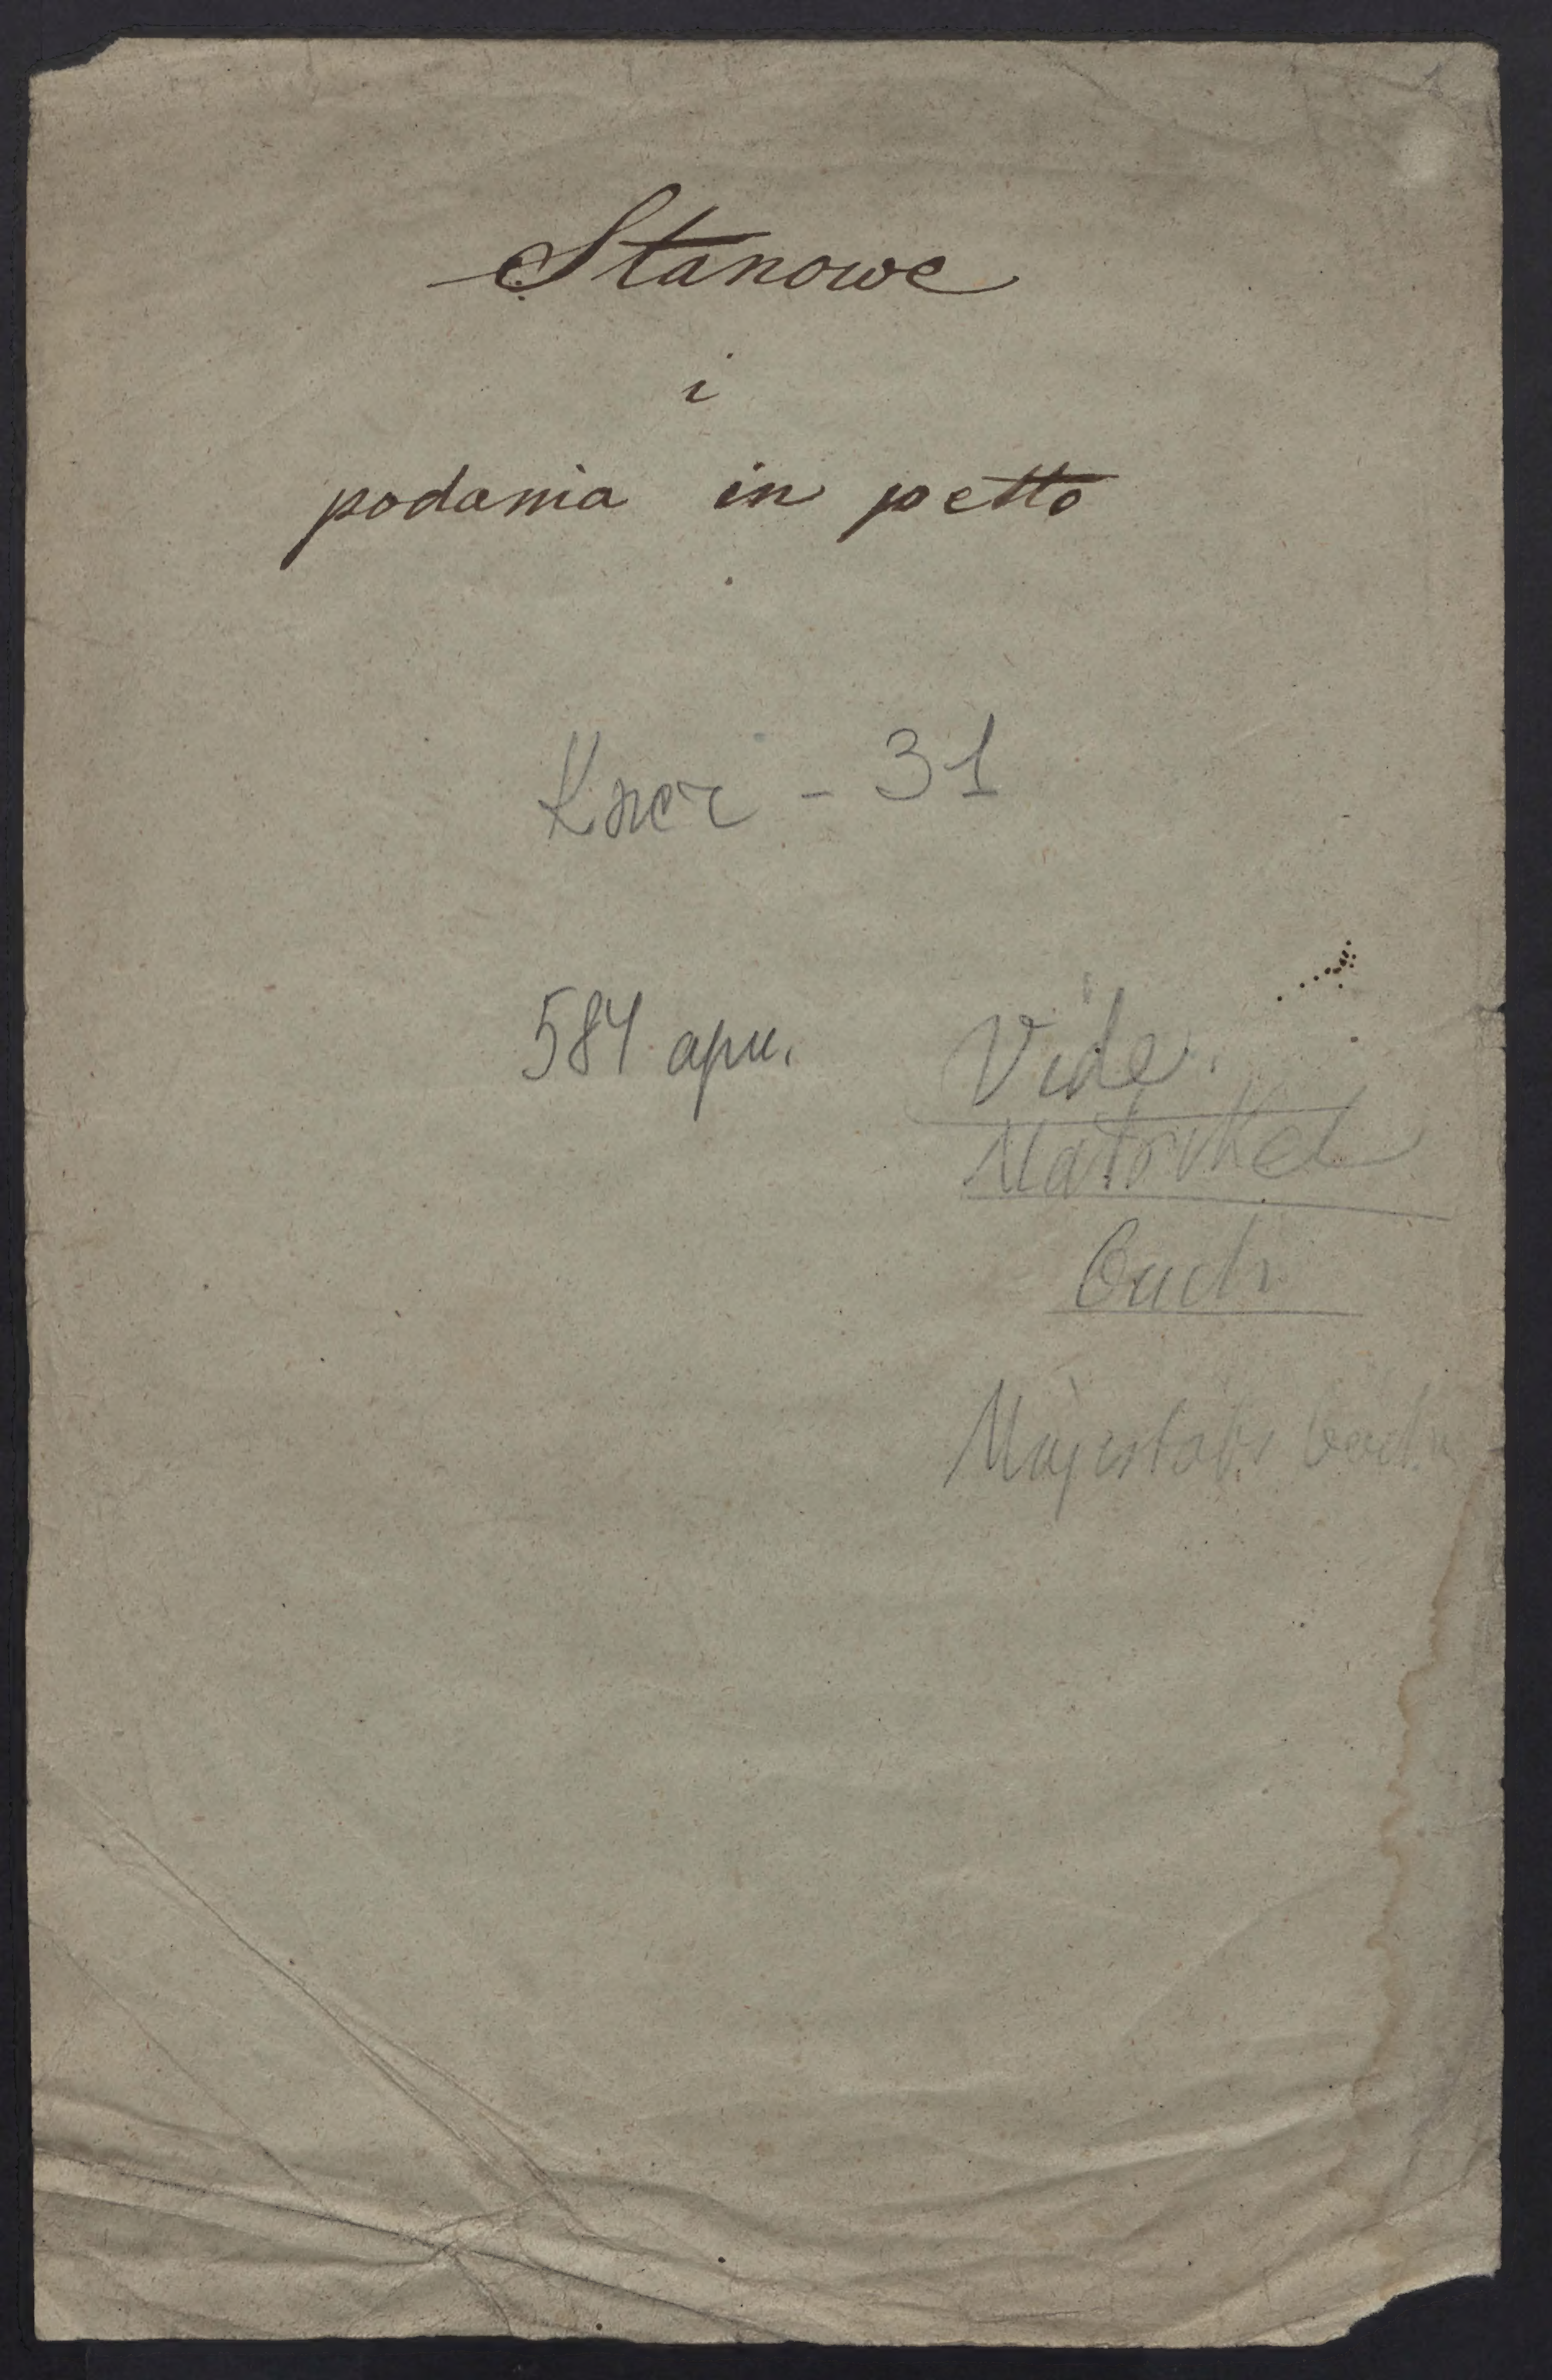 Stanowe
i
podania in petto
Кнег - 31
584 арк.
Vide.
Matrikel
Buch
Majestäts buch